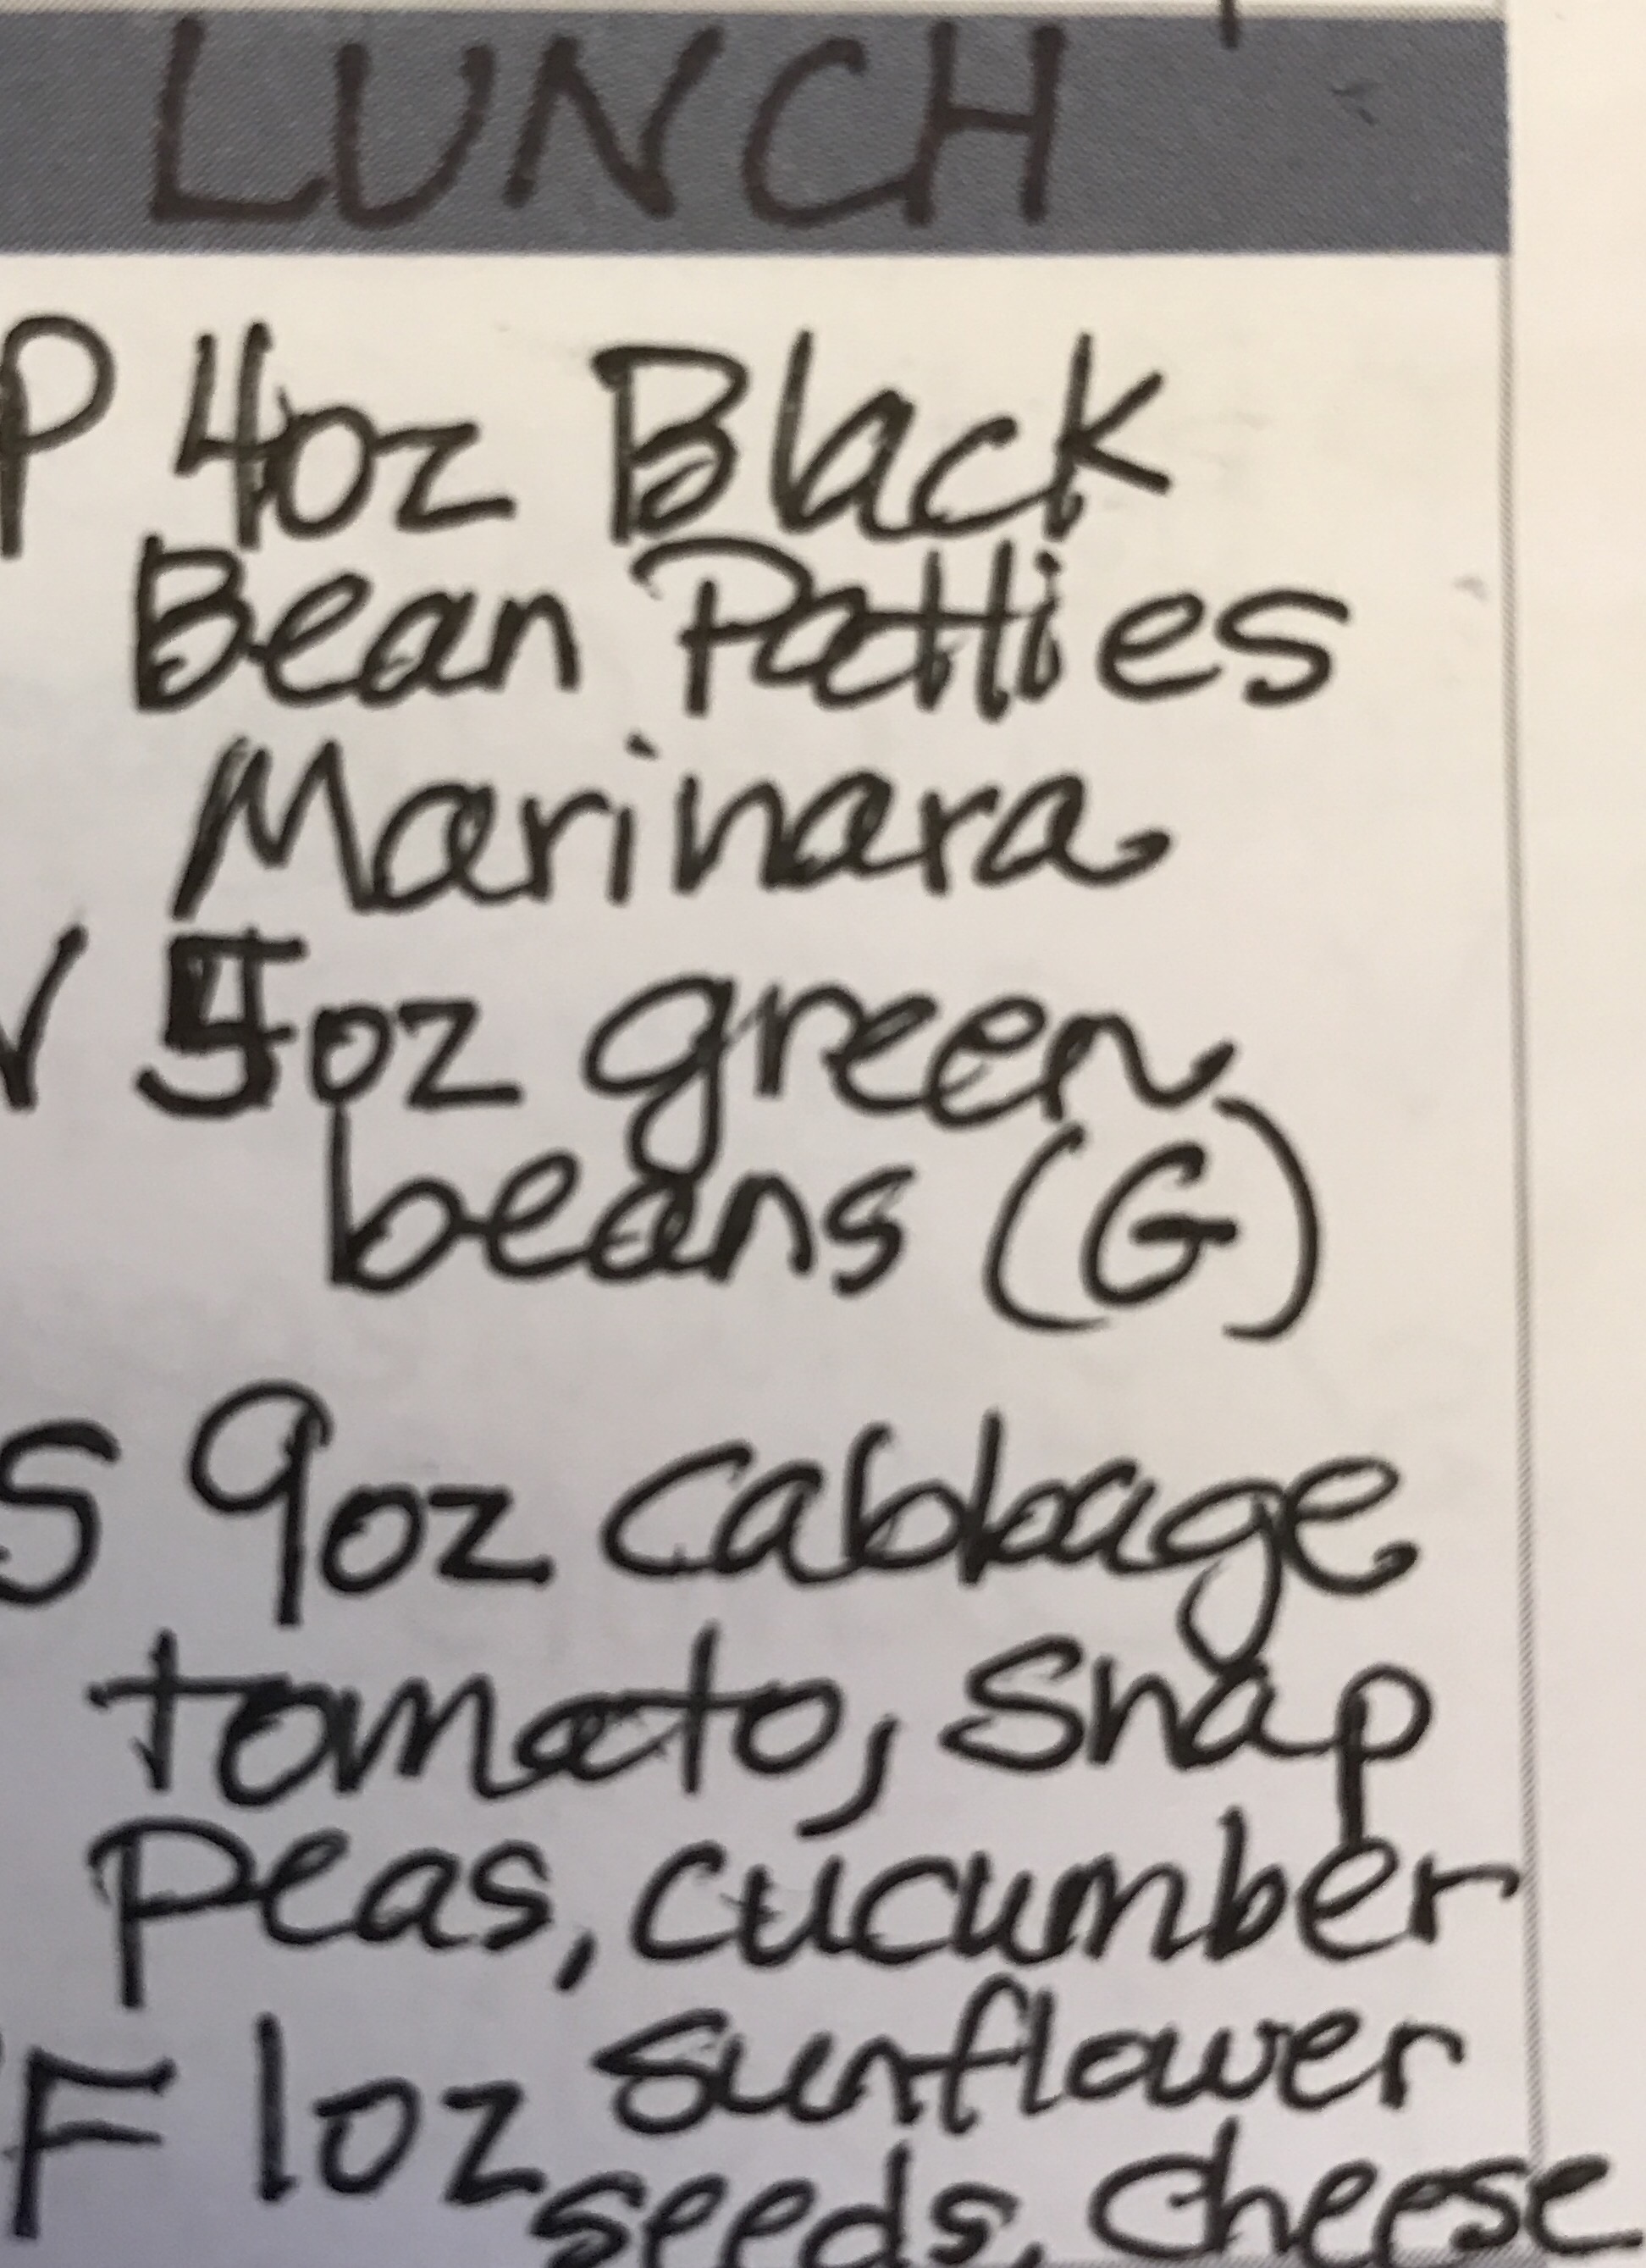 LUNCH
P 4oz Black
Bean Patties
Marinara
V 5oz green
beans (G)
S 9oz cabbage
tomato, snap
peas, cucumber
F 1oz sunflower
seeds, cheese